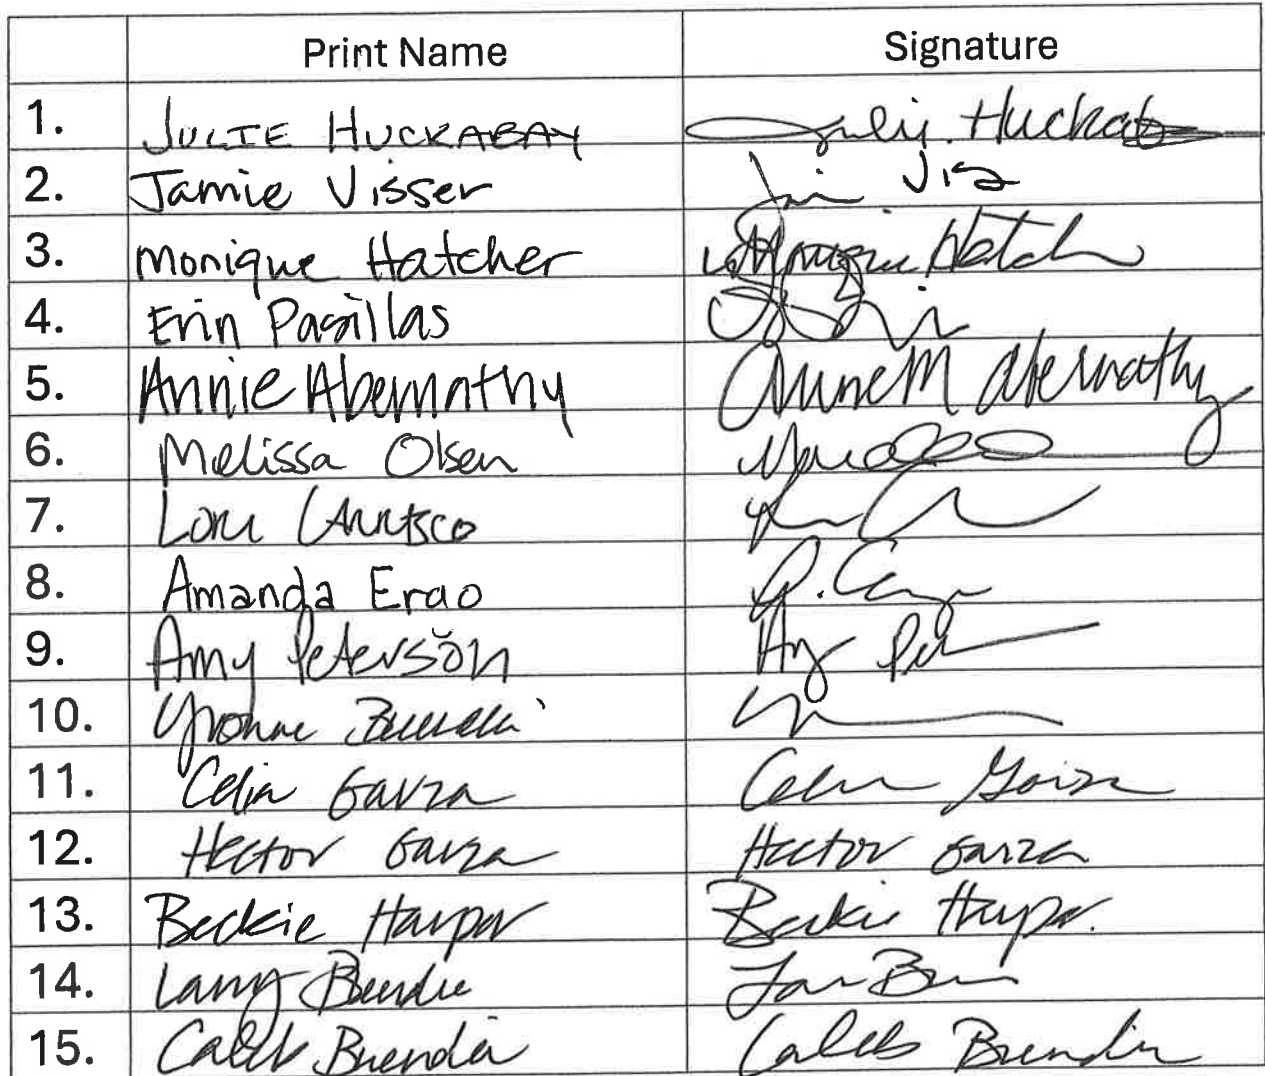 Print Name Signature
1. JULIE HUCKABAY Julie Huckab
2. Jamie Visser
3. Monique Hatcher Monique Hatch
4. Erin Pasillas
5. Annie Abernathy Anne M Abernathy
6. Melissa Olsen
7. Lori
8. Amanda Erao
9. Amy Peterson Amy Pet
10. Yvonne
11. Celia Garza Celia Garza
12. Hector Garza Hector Garza
13. Beckie Harper Beckie Harper.
14. Larry
15. Caleb Buendia Caleb Buendia